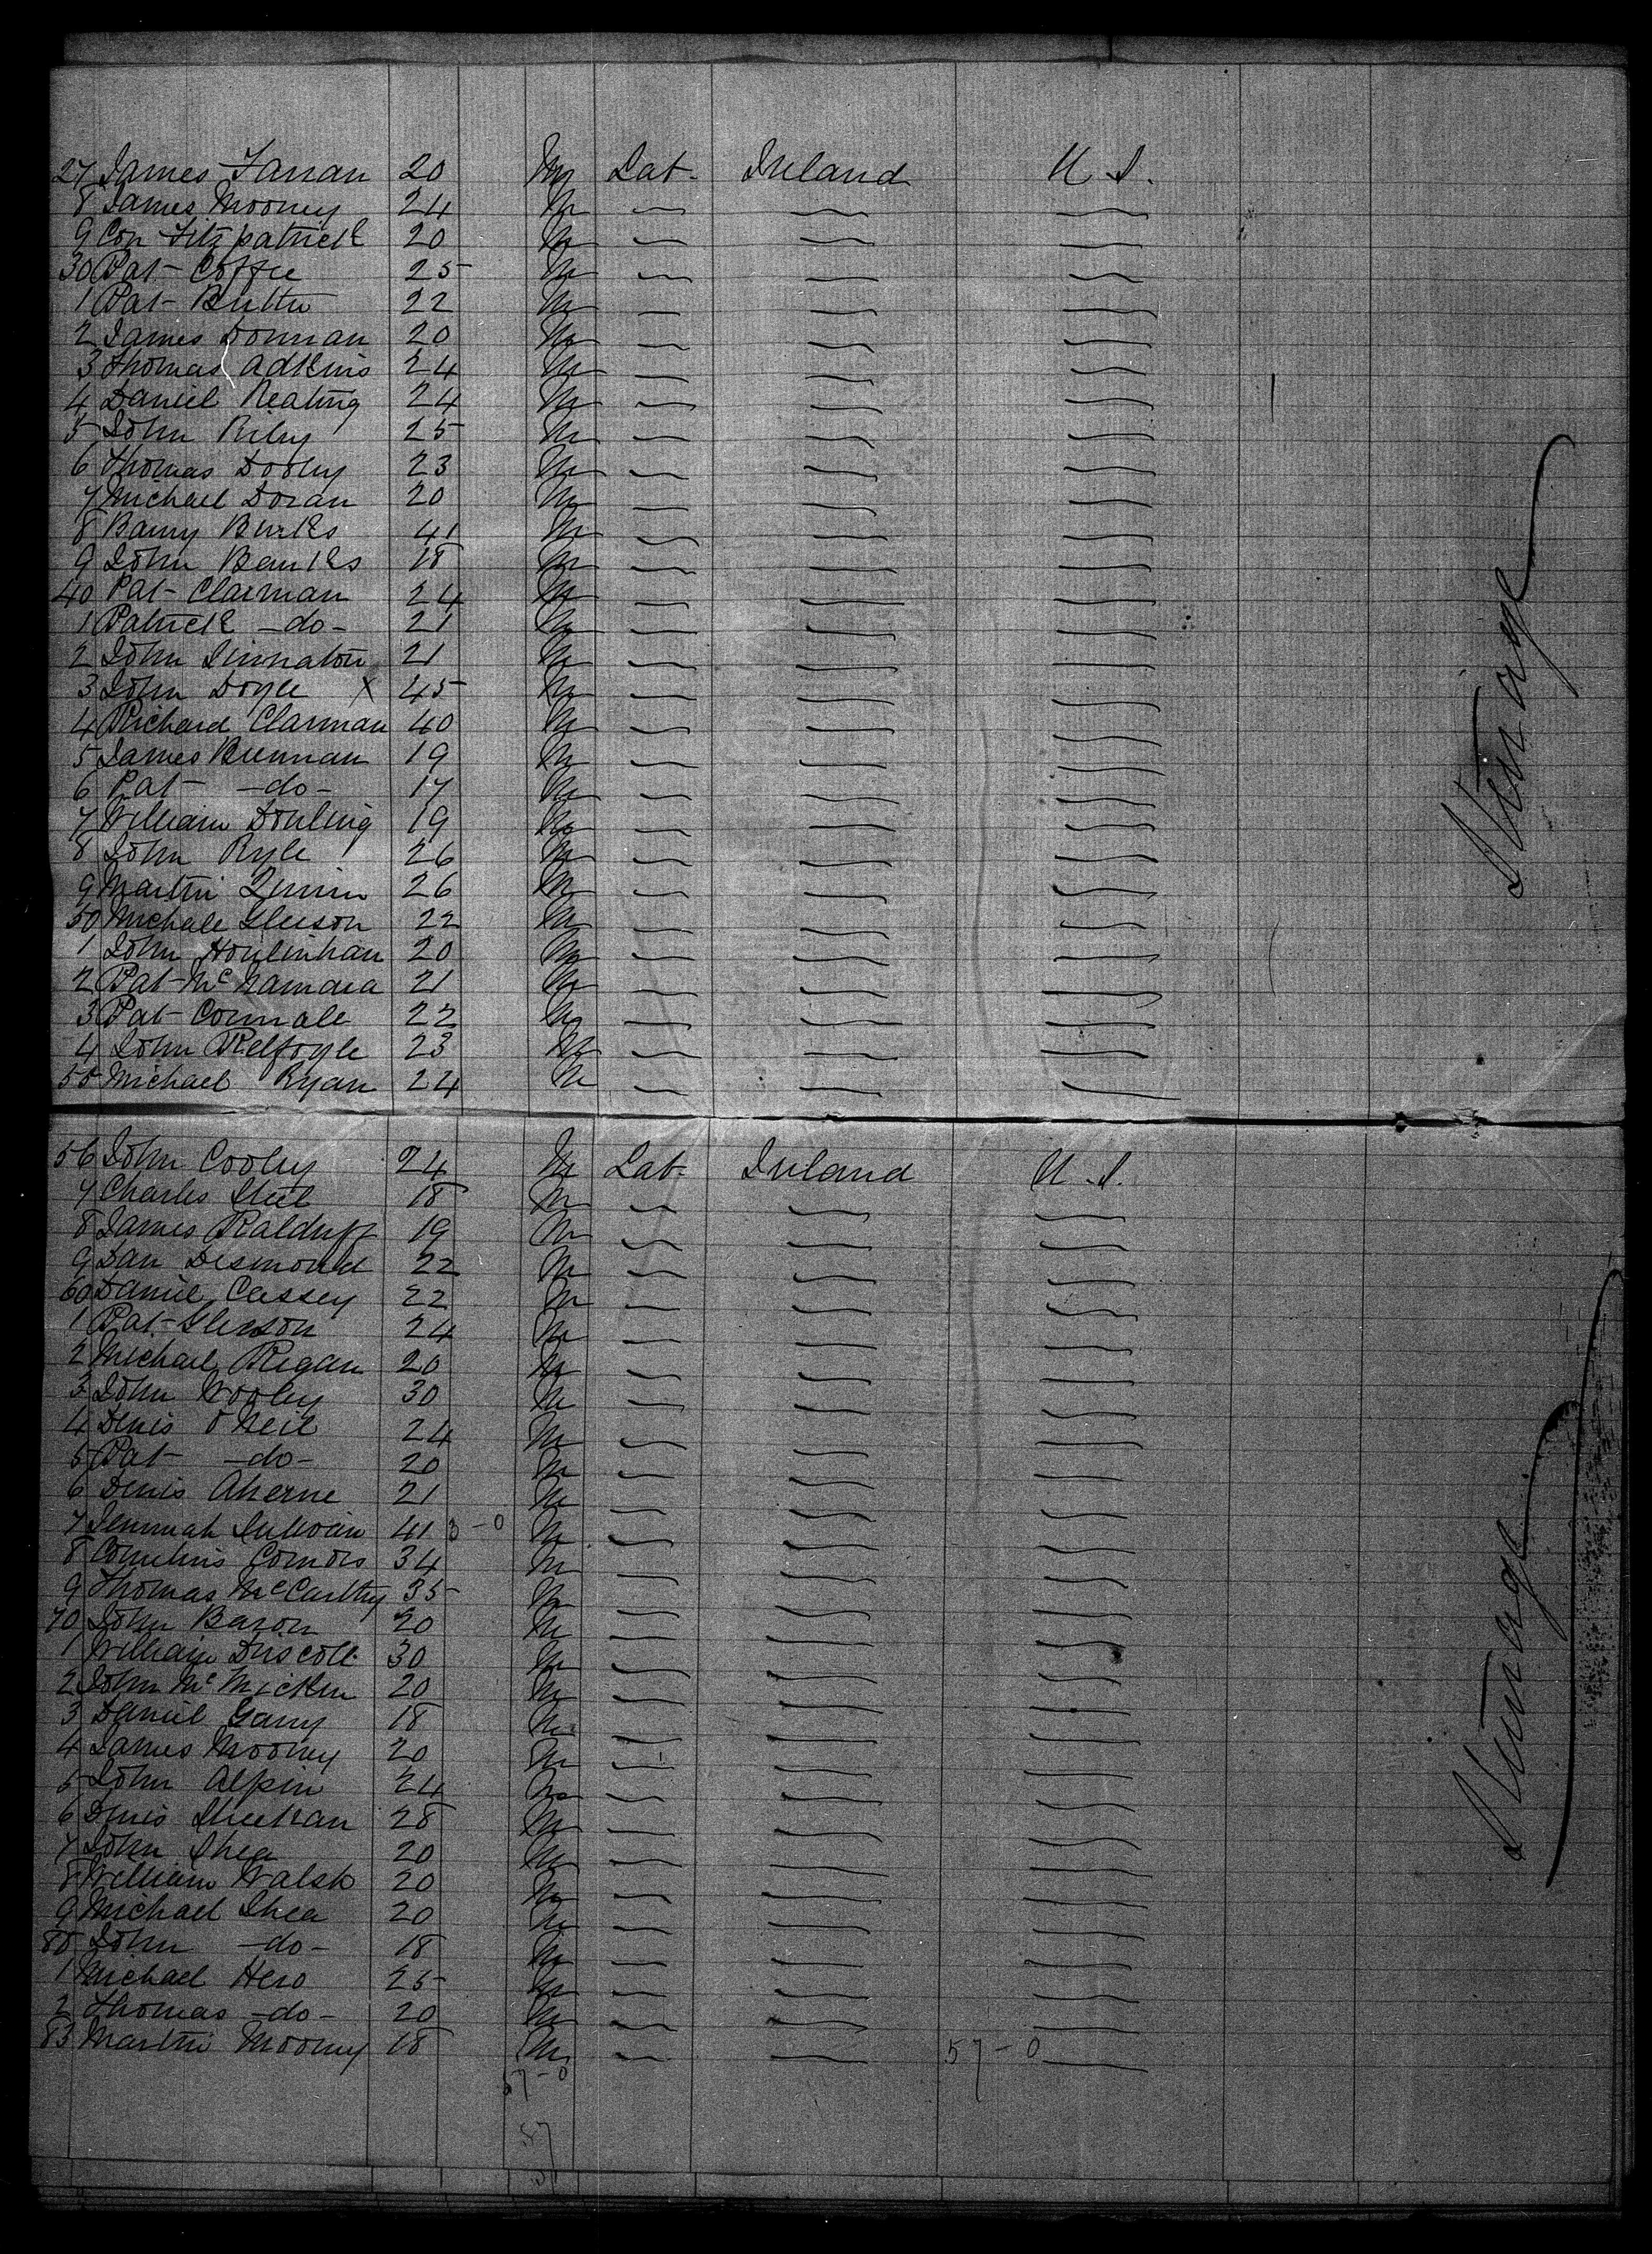 27 James Farran 20 M Lab. Ireland U.S.
8 James Mooney 24 M
9 Con Fitzpatrick 20 M
30 Pat Coffee 25 M
1 Pat 22 M
2 James 20 M
3 Thomas Adkins 24 M
4 Daniel Keating 24 M
5 John Riley 25 M
6 Thomas Dooley 23 M
7 Michael Doran 20 M
8 Barry Burks 41 M
9 John Banks 18 M
40 Pat Clarman 24 M
1 Patrick -do- 21 M
2 John 21 M
3 John Doyle X 45 M
4 Richard Clarman 40 M
5 James Brennan 19 M
6 Pat -do- 17 M
7 William Dowling 19 M
8 John Ryle 26 M
9 Martin 26 M
50 Michale Gleeson 22 M
1 John Houlinhan 20 M
2 Pat McNamara 21 M
3 Pat 22 M
4 John Relfoyle 23 M
55 Michael Ryan 24 M
Sturage
56 John Cooley 24 M Lab Ireland U.S.
7 Charles Steel 18 M
8 James Balduff 19 M
9 Dan Desmond 22 M
60 Daniel Cassey 22 M
1 Pat Gleeson 24 M
2 Michael Regan 20 M
3 John Wooley 30 M
4 Denis O Neil 24 M
5 Pat -do- 20 M
6 Denis Aherne 21 M
7 Jeremiah Sullivan 41 3-0 M
8 Cornelius Connors 34 M
9 Thomas McCarthy 35 M
70 John Baron 20 M
1 William Driscoll 30 M
2 John McMicken 20 M
3 Daniel Garry 18 M
4 James Mooney 20 M
5 John Alpin 24 M
6 Denis Sheehan 28 M
7 John Shea 20 M
8 William Walsh 20 M
9 Michael Shea 20 M
80 John -do- 18 M
1 Michael Hero 25 M
2 Thomas -do- 20 M
83 Martin Mooney 18 M 57-0
57-0
57
Sturage